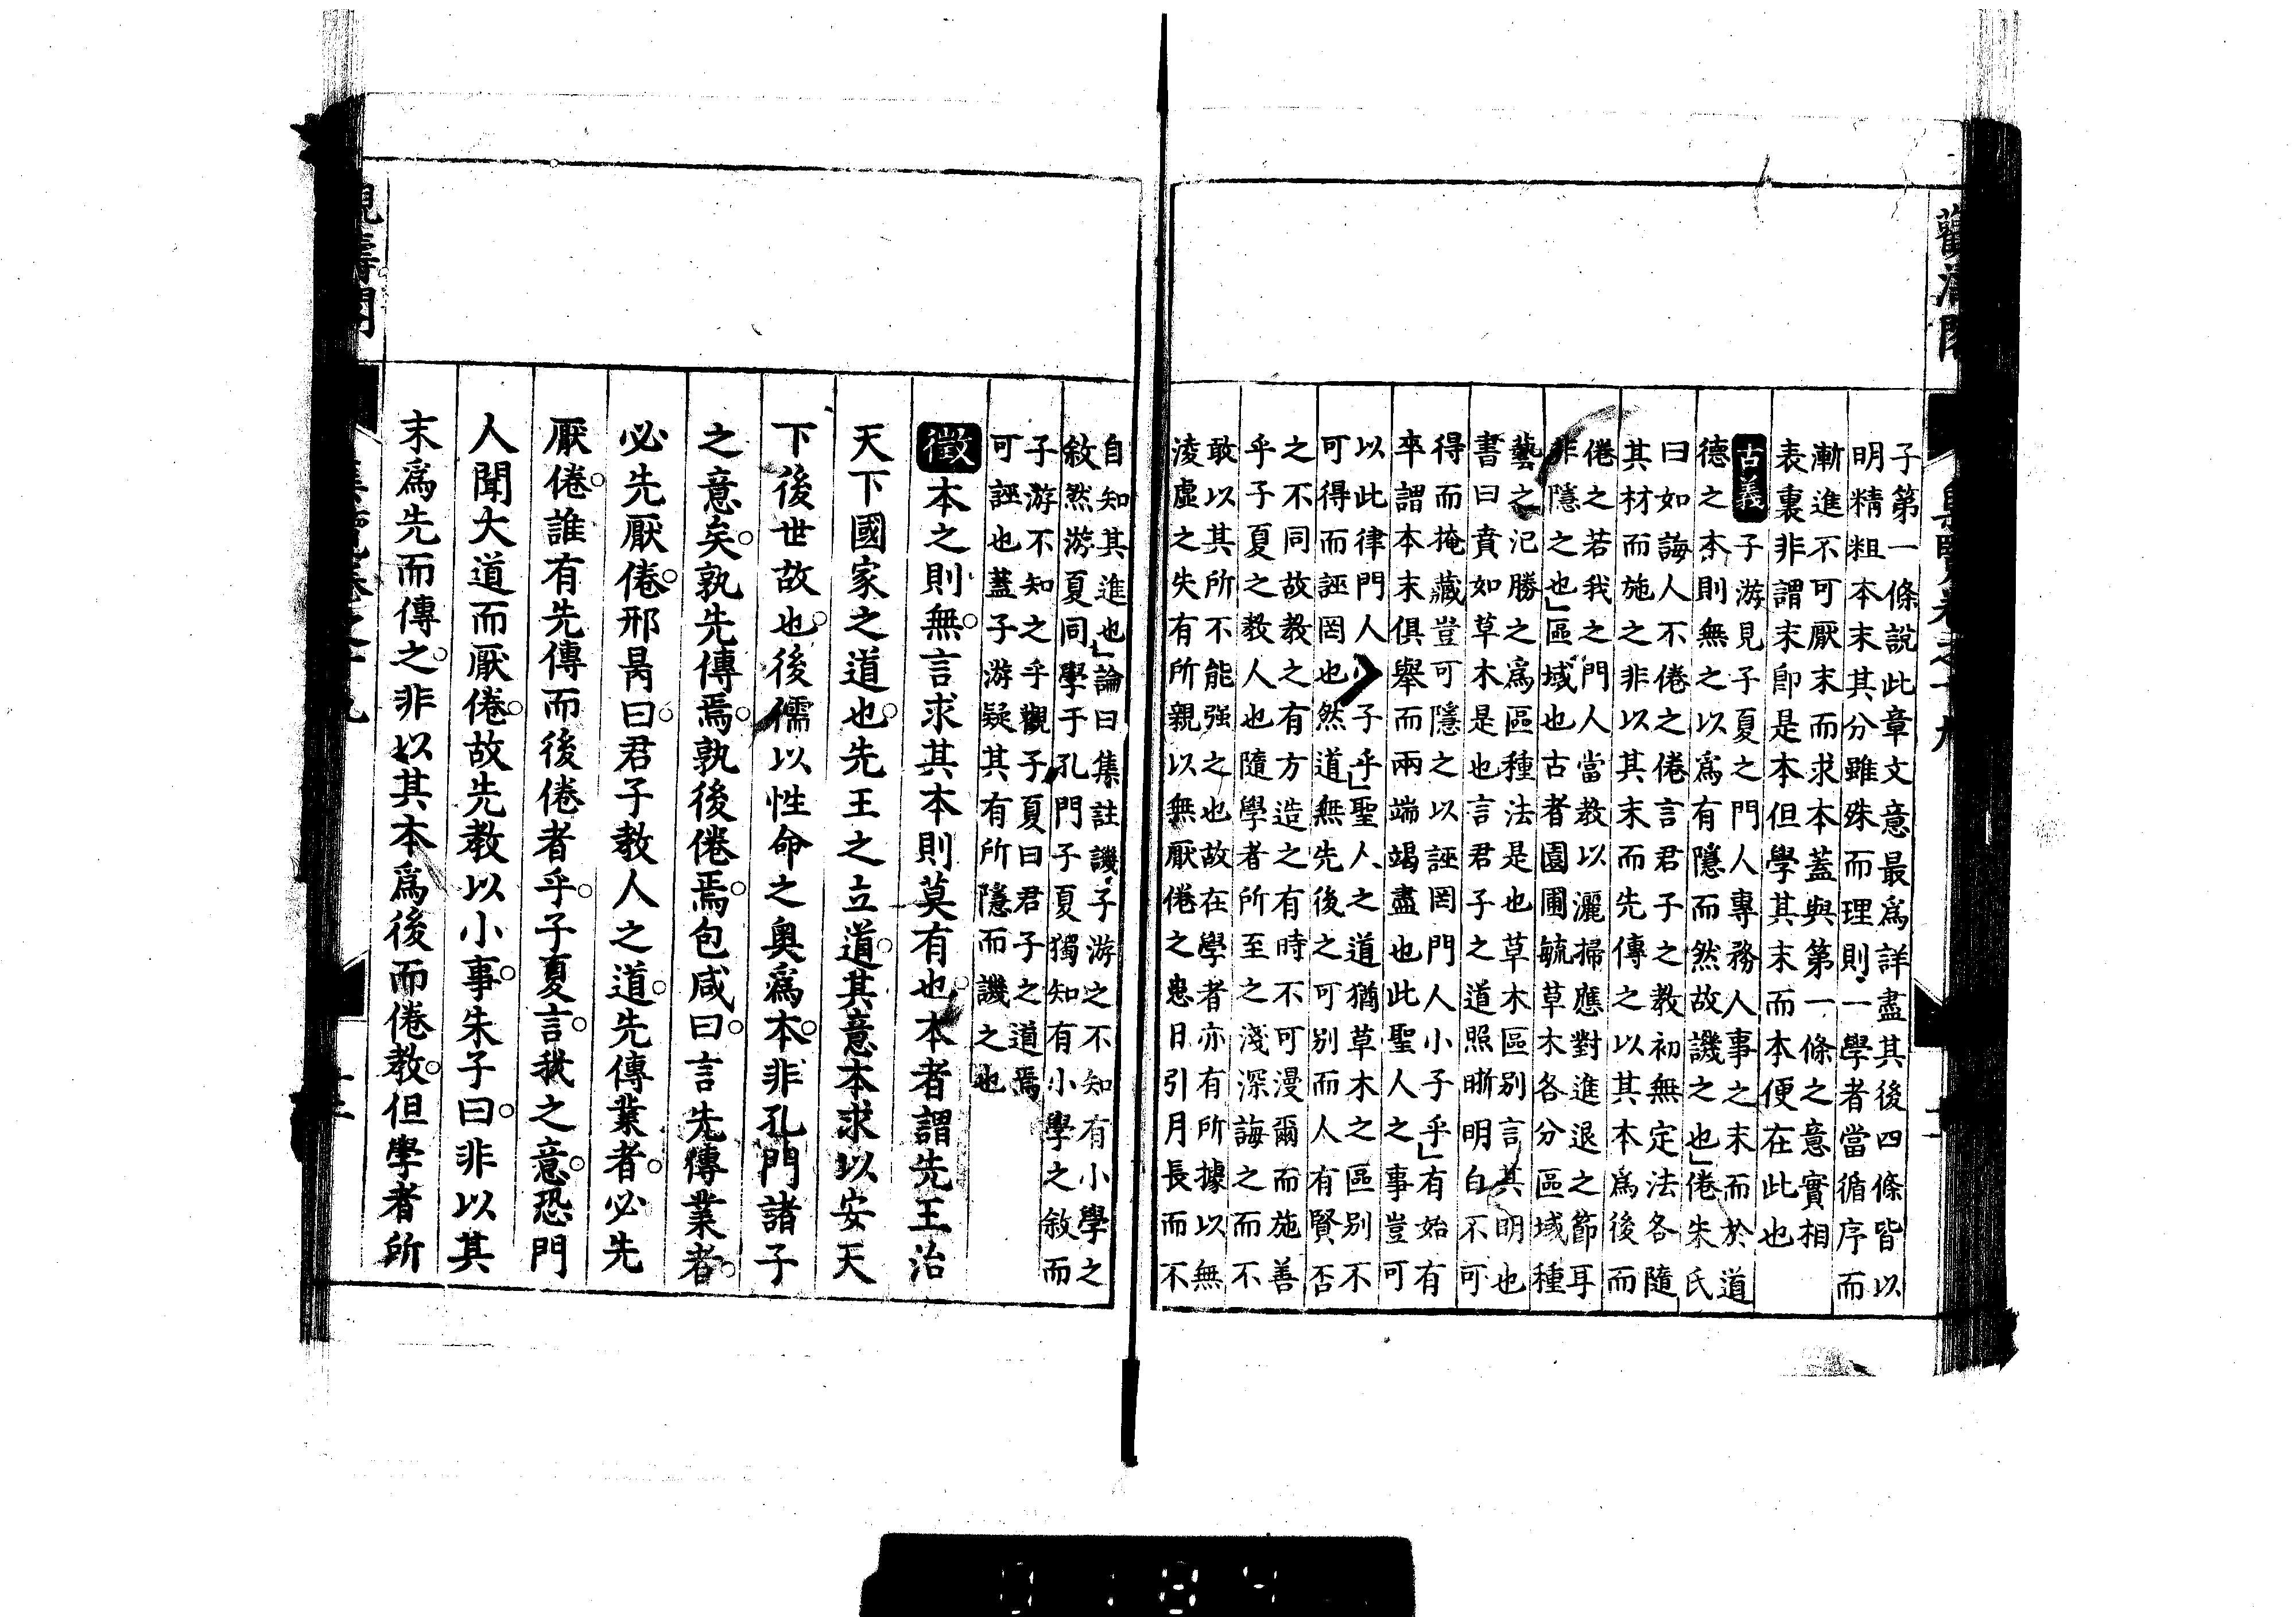 子第一條說此章文意最爲詳盡其後四條皆以
明精粗本末其分雖殊而理則一學者當循序而
漸進不可厭末而求本蓋與第一條之意實相
表裏非謂末卽是本但學其末而本便在此也
古義子游見子夏之門人專務人事之末而於道
德之本則無之以爲有隱而然故譏之也」倦朱氏
曰如誨人不倦之倦言君子之教初無定法各隨
其材而施之非以其末而先傳之以其本爲後而
倦之若我之門人當教以灑掃應對進退之節耳
非隱之也」區域也古者園圃毓草木各分區域種
藝之氾勝之爲區種法是也草木區別言其明也
書曰賁如草木是也言君子之道照晰明白不可
得而掩藏豈可隱之以誣罔門人小子乎」有始有
卒謂本末俱舉而兩端竭盡也此聖人之事豈可
以此律門人小子乎」聖人之道猶草木之區別不
可得而誣罔也然道無先後之可別而人有賢否
之不同故教之有方造之有時不可漫爾而施善
乎子夏之教人也隨學者所至之淺深誨之而不
敢以其所不能强之也故在學者亦有所據以無
淩虛之失有所親以無厭倦之患日引月長而不
自知其進也」論曰集註譏子游之不知有小學之
敘然游夏同學于孔門子夏獨知有小學之敘而
子游不知之乎觀子夏曰君子之道焉
可誣也蓋子游疑其有所隱而譏之也
徵本之則無言求其本則莫有也本者謂先王治
天下國家之道也先王之立道其意本求以安天
下後世故也後儒以性命之奧爲本非孔門諸子
之意矣孰先傳焉孰後倦焉包咸曰言先傳業者
必先厭倦邢昺曰君子教人之道先傳業者必先
厭倦誰有先傳而後倦者乎子夏言我之意恐門
人聞大道而厭倦故先教以小事朱子曰非以其
末爲先而傳之非以其本爲後而倦教但學者所